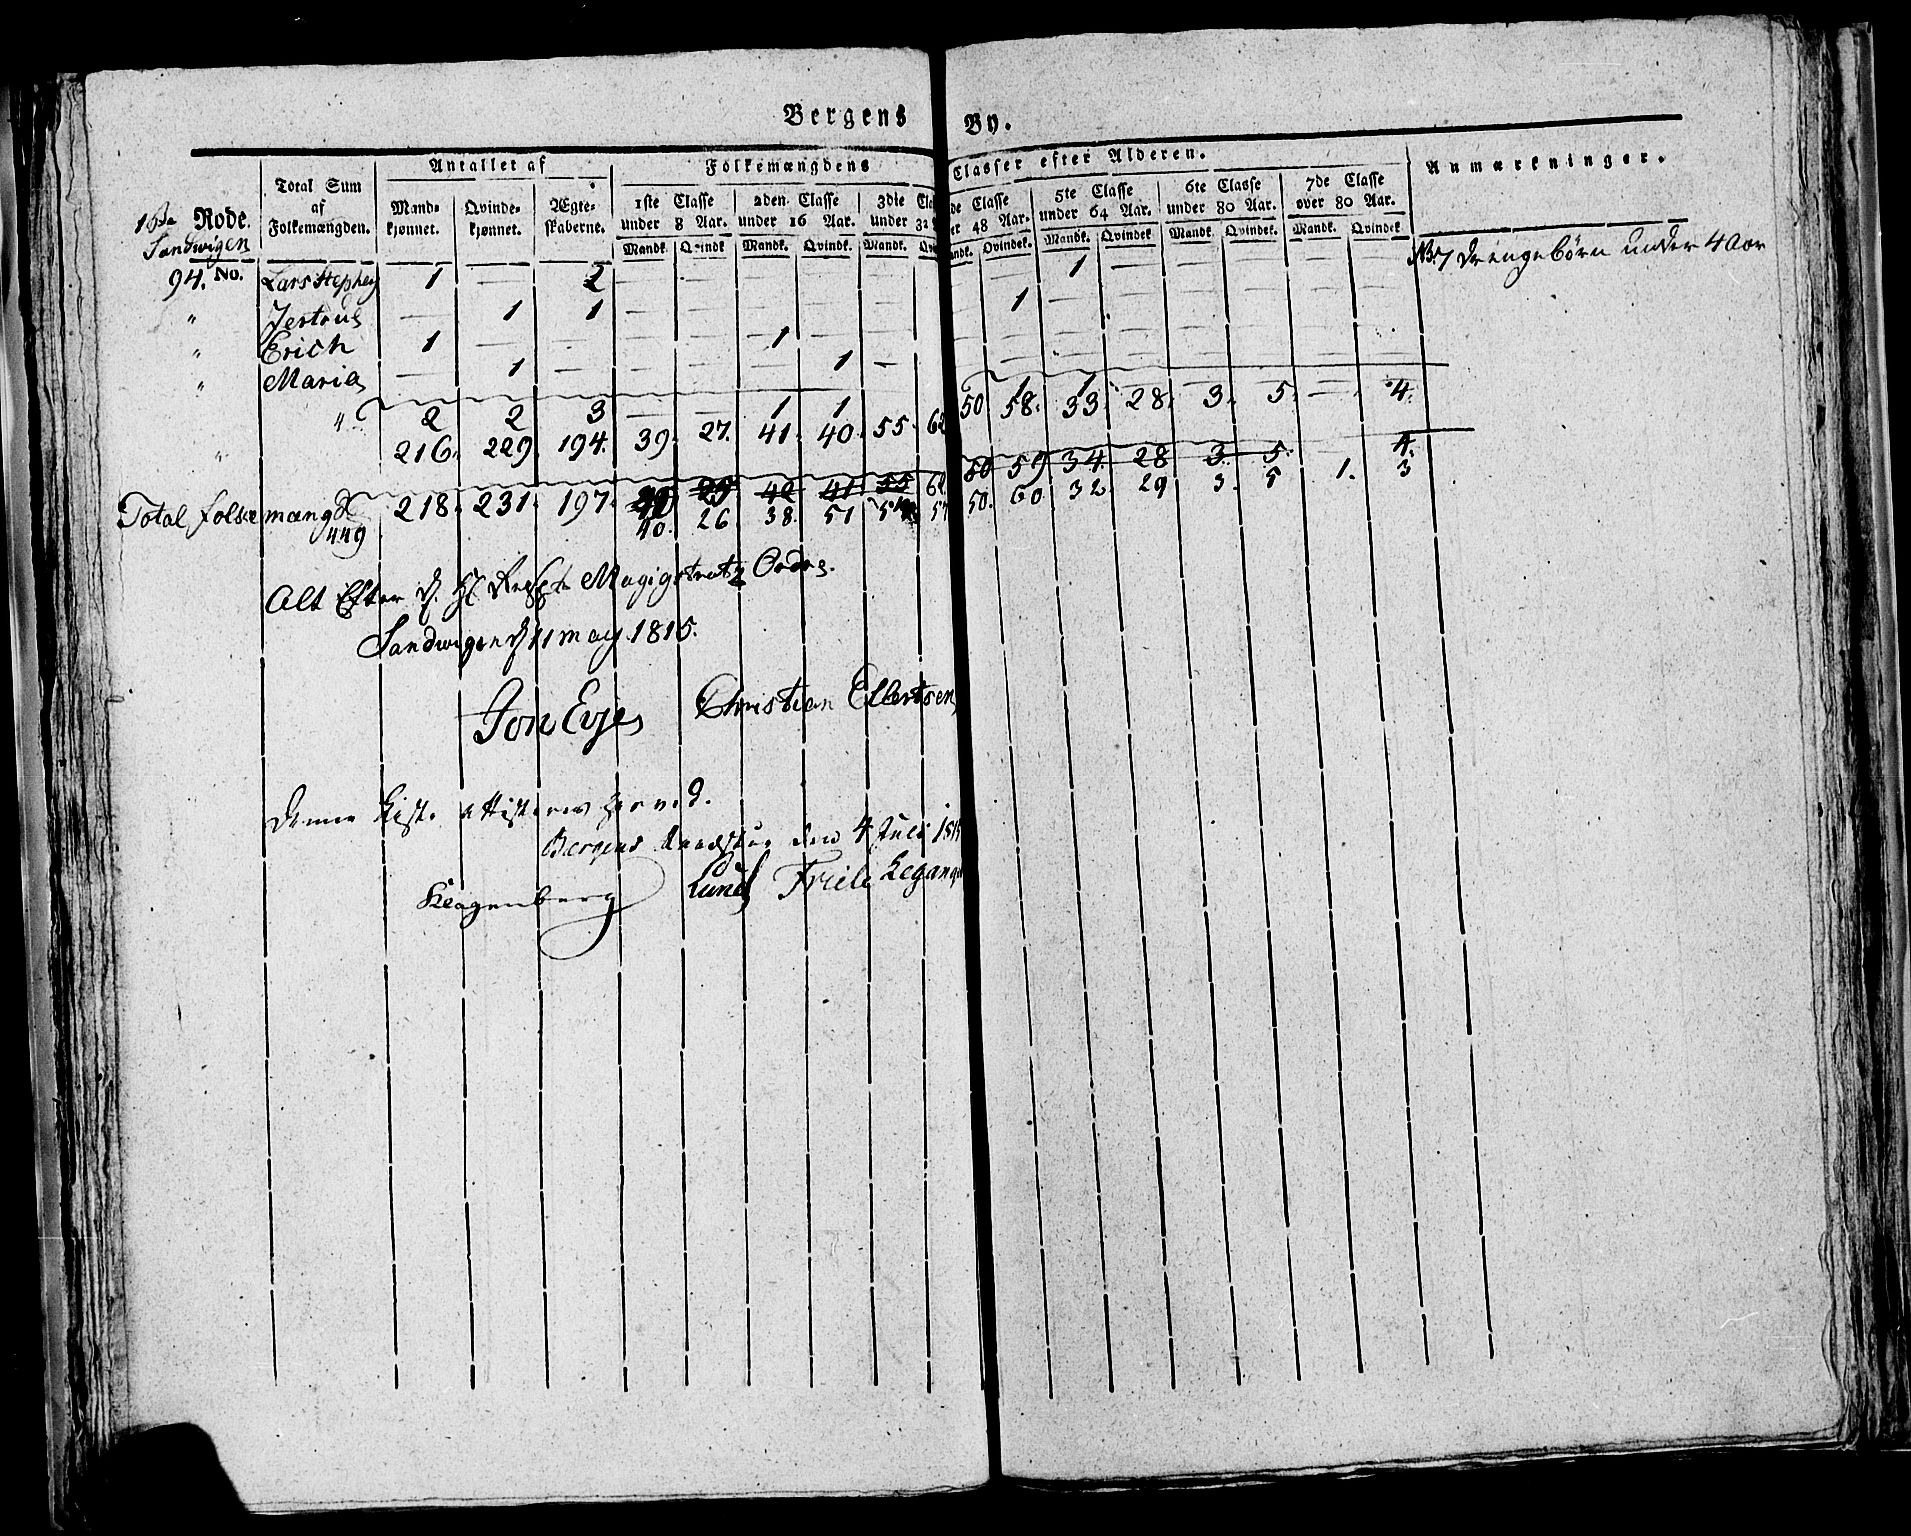 Bergens By.
Antallet af Folkemængdens Classer efter Alderen. Anmærkninger.
Rode. Total Sum af Folkemængden. Mandkjønnet. Qvindekjønnet. Ægteskaberne. 1ste Classe under 8 Aar. 2den Classe under 16 Aar. 3die under 32 48 Aar. 5te Classe under 64 Aar. 6te Classe under 80 Aar. 7de Classe over 80 Aar.
Sandwigen
Mandk. Qvindk. Mandk. Qvindk. Mandk. Qvindek. Mandk. Qvindek. Mandk. Qvindek. Mandk. Qvindek.
94. No. Lars 1 — 2 — — — — — 1 — — — — — 7 drengebørn under 4 Aar
" — 1 1 — — — — — 1 — — — — — —
" Erich 1 — — — — 1 — — — — — —
" Maria — 1 — — — — 1 — — — — —
" 2 2 3 — — 1 1 1 1 — — — — —
" 216. 229. 194. 39. 27. 41. 40. 55. 62 50 58. 33 28. 3. 5. — 4.
218. 231. 197. 29 42 41 55 62 50 59 34. 28 3. 5. 4.
Total folkemængd 449 40. 26 38. 51 50. 60. 32 29 3. 5 1. 3
Alt Efter Magistratz Ordre.
Sandwigen d 11 may 1815.
Jon Evje Christian Elbertsen
Denne Liste attisteres herved.
Bergens Raadstue den 4 Juli
Klagenberg Lund Friele